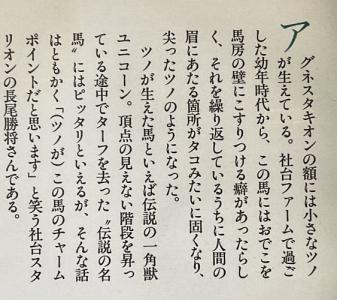 アグネスタキオンの額には小さなツノ
が生えている。社台ファームで過ご
した幼年時代から、この馬にはおでこを
馬房の壁にこすりつける癖があったらし
く、それを繰り返しているうちに人間の
眉にあたる箇所がタコみたいに固くなり、
尖ったツノのようになった。
ツノが生えた馬といえば伝説の一角獣
ユニコーン。頂点の見えない階段を昇っ
ている途中でターフを去った〝伝説の名
馬〟にはピッタリといえるが、そんな話
はともかく「（ツノが）この馬のチャーム
ポイントだと思います」と笑う社台スタ
リオンの長尾勝将さんである。